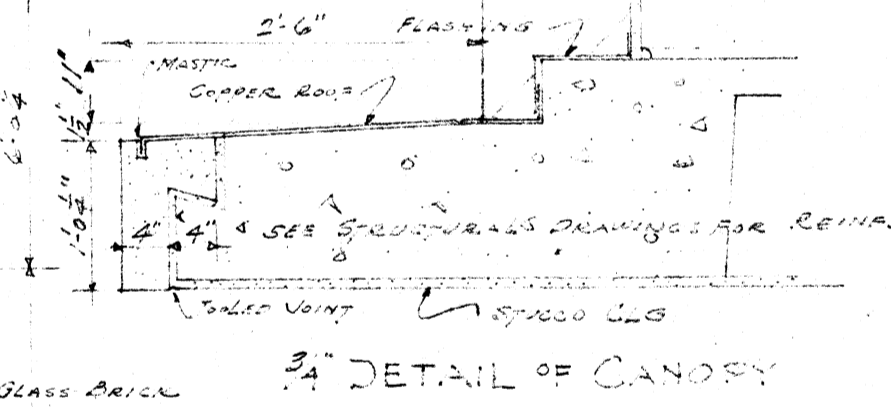 2'-6" FLASHING
MASTIC
COPPER ROOF
11"
1½"
6'-0¼"
1'-0¼"
4" 4" SEE STRUCTURALS DRAWINGS FOR REINF.
TOOLED JOINT STUCCO CLG
¾" DETAIL OF CANOPY
GLASS BRICK